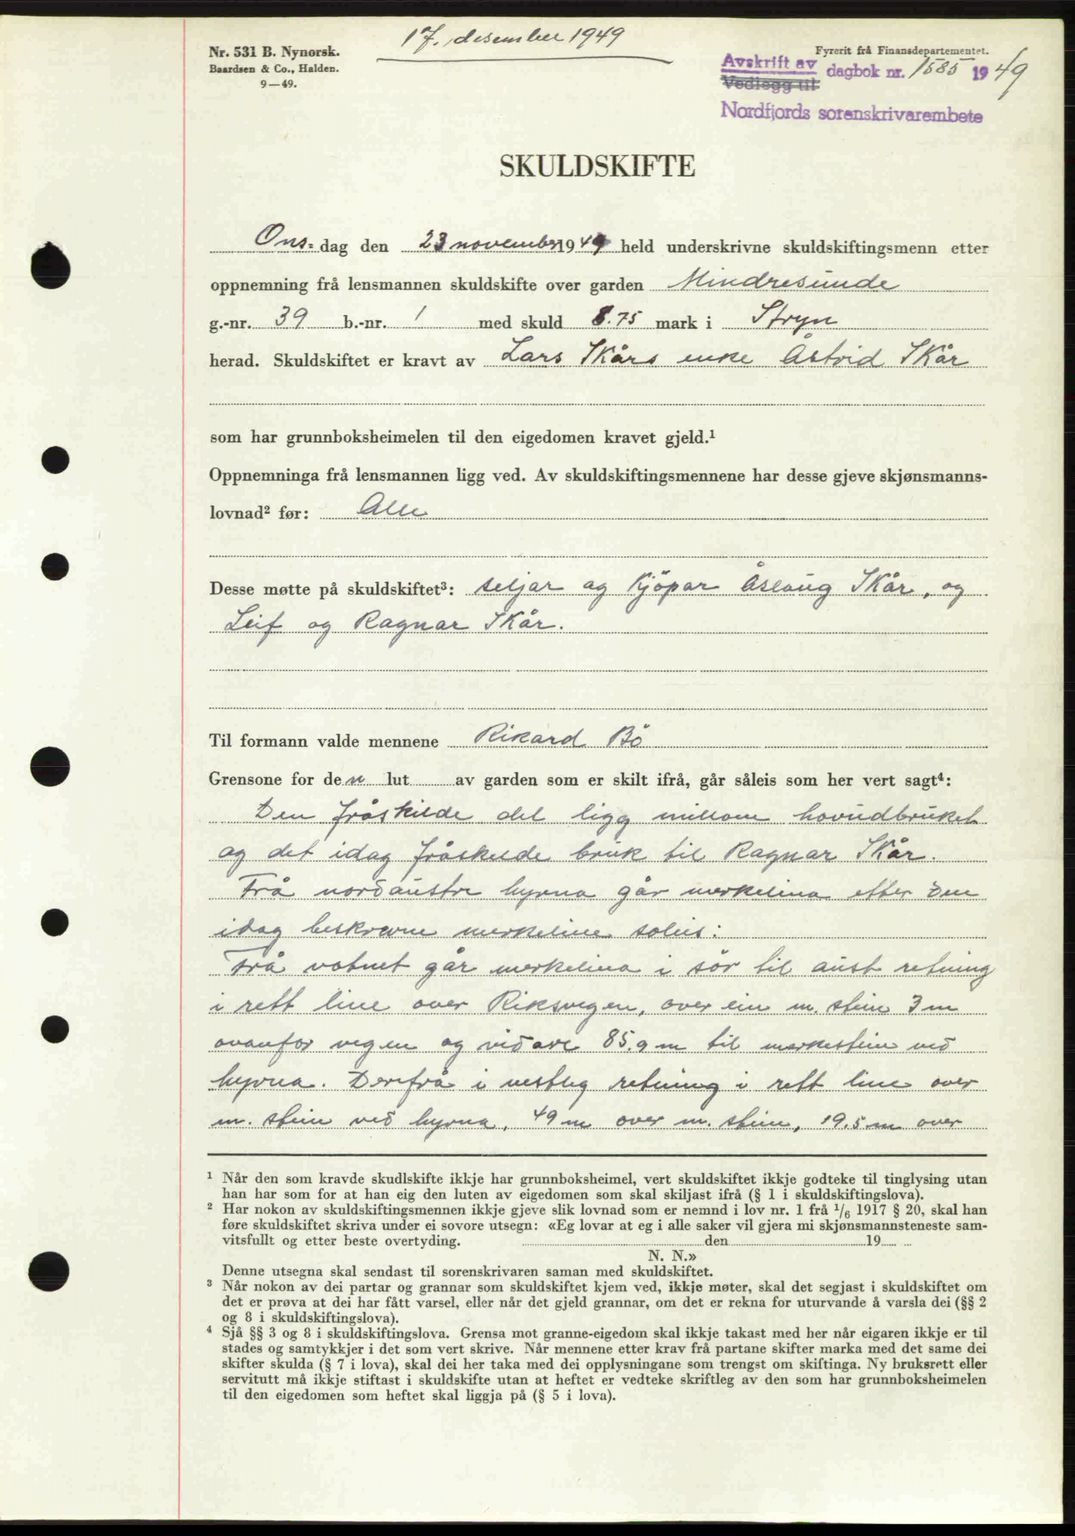 17. desember 1949
Nr. 531 B. Nynorsk.
Baardsen & Co., Halden.
9—49.
Fyrerit frå Finansdepartementet.
Avskrift av
Vedlegg til
dagbok nr. 1585 1949
Nordfjords sorenskrivarembete
SKULDSKIFTE
Ons-dag den 23 november 1949 held underskrivne skuldskiftingsmenn etter
oppnemning frå lensmannen skuldskifte over garden Mindresunde
g.-nr. 39 b.-nr. 1 med skuld 8.75 mark i Stryn
herad. Skuldskiftet er kravt av Lars Skårs enke Åstrid Skår
som har grunnboksheimelen til den eigedomen kravet gjeld.¹
Oppnemninga frå lensmannen ligg ved. Av skuldskiftingsmennene har desse gjeve skjønsmanns-
lovnad² før: Alle
Desse møtte på skuldskiftet³: seljar og Kjöpar Åslaug Skår, og
Leif og Ragnar Skår.
Til formann valde mennene Rikard Bö
Grensone for den lut av garden som er skilt ifrå, går såleis som her vert sagt⁴:
Den fråskilde del ligg millom hovudbruket
og det idag fråskilde bruk til Ragnar Skår.
Frå nordaustre hyrna går merkelina etter den
idag beskrevne merkeline soleis:
Frå vatnet går merkelina i sör til aust retning
i rett line over Riksvegen, over ein m. stein 3 m
ovanfor vegen og vidare 85.9 m til merkestein ved
hyrna. Derifrå i vestleg retning i rett line over
m. stein ved hyrna, 49 m over m. stein, 19.5 m over
¹ Når den som kravde skudlskifte ikkje har grunnboksheimel, vert skuldskiftet ikkje godteke til tinglysing utan
han har som for at han eig den luten av eigedomen som skal skiljast ifrå (§ 1 i skuldskiftingslova).
² Har nokon av skuldskiftingsmennen ikkje gjeve slik lovnad som er nemnd i lov nr. 1 frå 1/6 1917 § 20, skal han
føre skuldskiftet skriva under ei sovore utsegn: «Eg lovar at eg i alle saker vil gjera mi skjønsmannsteneste sam-
vitsfullt og etter beste overtyding. den 19
N. N.»
Denne utsegna skal sendast til sorenskrivaren saman med skuldskiftet.
³ Når nokon av dei partar og grannar som skuldskiftet kjem ved, ikkje møter, skal det segjast i skuldskiftet om
det er prøva at dei har fått varsel, eller når det gjeld grannar, om det er rekna for uturvande å varsla dei (§§ 2
og 8 i skuldskiftingslova).
⁴ Sjå §§ 3 og 8 i skuldskiftingslova. Grensa mot granne-eigedom skal ikkje takast med her når eigaren ikkje er til
stades og samtykkjer i det som vert skrive. Når mennene etter krav frå partane skifter marka med det same dei
skifter skulda (§ 7 i lova), skal dei her taka med dei opplysningane som trengst om skiftinga. Ny bruksrett eller
servitutt må ikkje stiftast i skuldskifte utan at heftet er vedteke skriftleg av den som har grunnboksheimelen
til den eigedomen som heftet skal liggja på (§ 5 i lova).